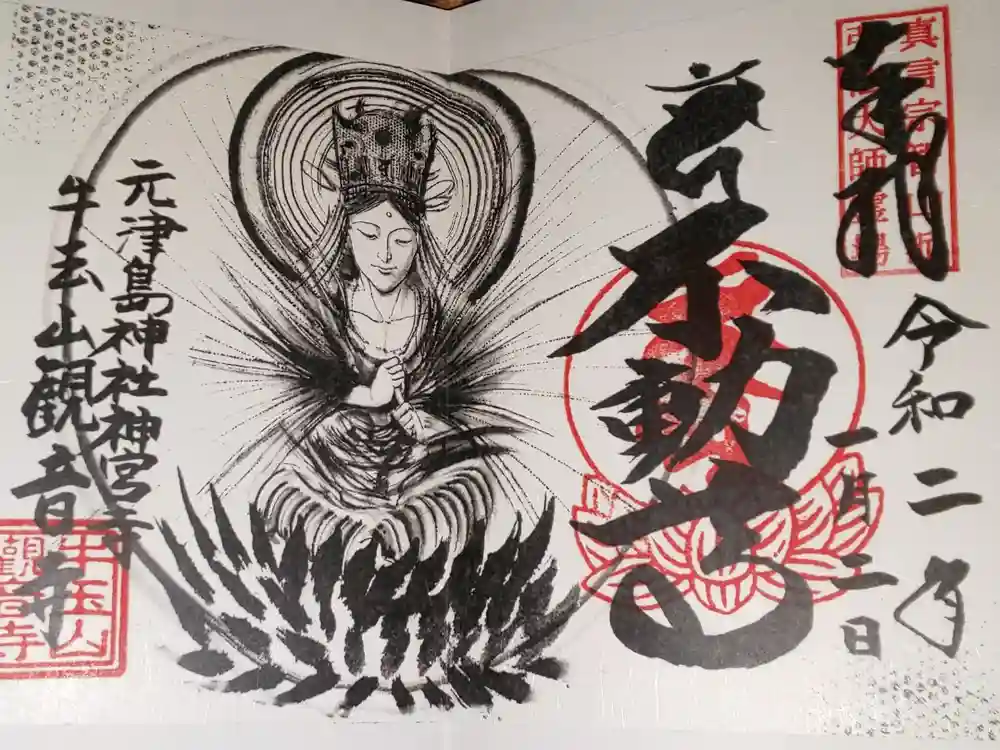 奉拝
真言宗智山派
弘法大師霊場
令和二年
一月三日
不動尊
元津島神社神宮寺
牛玉山觀音寺
牛玉山
觀音寺